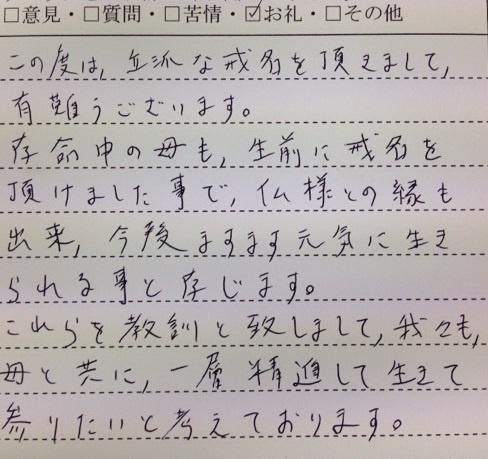 □意見・□質問・□苦情・☑お礼・□その他
この度は、立派な戒名を頂きまして、
有難うございます。
存命中の母も、生前に戒名を
頂けました事で、仏様との縁も
出来、今後ますます元気に生き
られる事と存じます。
これらを教訓と致しまして、我々も、
母と共に、一層精進して生きて
参りたいと考えております。